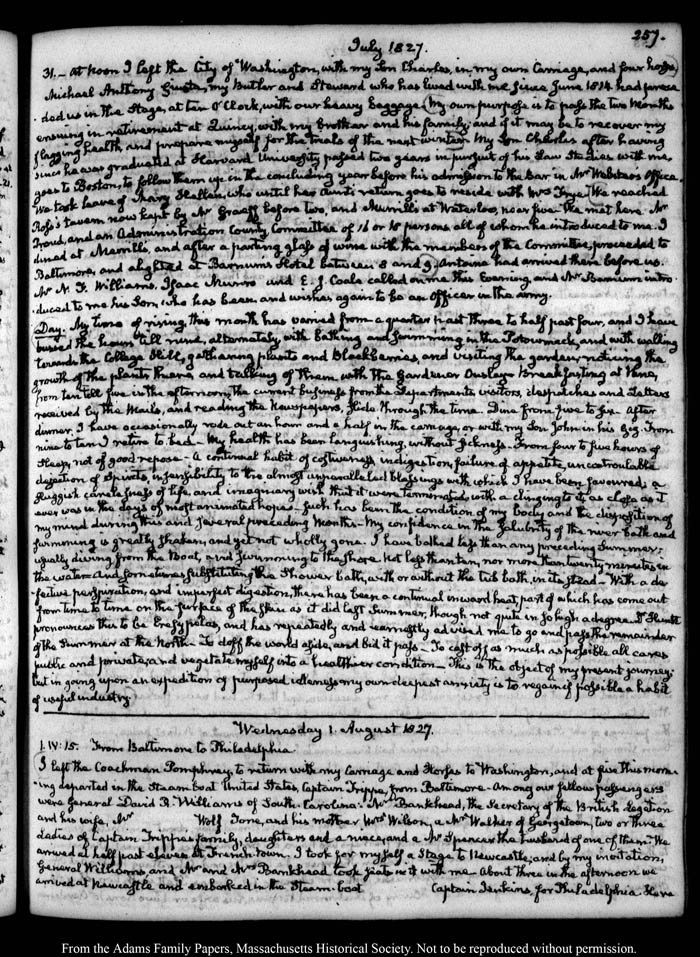 257.
July 1827.
31. - At noon I left the City of Washington, with my Son Charles, in my own Carriage, and four horses
Michael Anthony Giusta, my Butler and Steward who has lived with me since June 1814 had prece-
-ded us in the Stage, at ten O'Clock, with our heavy baggage. My own purpose is to pass the two Months
ensuing in retirement at Quincy, with my brother and his family; and if it may be to recover my
flagging health, and prepare myself for the trials of the next winter. My Son Charles after having
since he was graduated at Harvard University passed two years in pursuit of his Law Studies with me,
goes to Boston, to follow them up in the concluding year before his admission to the Bar in Mr Webster's Office.
We took leave of Mary Hellen, who until her aunt's return goes to reside with Mrs Frye. We reached
Ross's tavern now kept by Mr Graeff before two, and Merrill's at Waterloo, near five. We met here Mr
Proud, and an Administration County Committee of 16 or 18 persons all of whom he introduced to me. I
dined at Merrills, and after a parting glass of wine with the members of the Committee, proceeded to
Baltimore, and alighted at Barnum's Hotel between 8 and 9. Antoine had arrived there before us.
Mr N. F. Williams, Isaac Munro and E. J. Coale called on me this Evening, and Mr Barnum intro-
-duced to me his Son, who has been, and wishes again to be an Officer in the army.
Day. My time of rising, this month has varied from a quarter past three to half past four, and I have
bussed the hours till nine, alternately, with bathing and swimming in the Potowmack, and with walking
towards the College Hill, gathering plants and Blackberries, and visiting the garden, noticing the
growth of the plants there and talking of them with the Gardener Ousley. Breakfasting at Nine,
from ten till five in the afternoon, the current business from the Departments, visitors, despatches and Letters
received by the Mails, and reading the Newspapers, slide through the time. Dine from five to six. After
dinner, I have occasionally rode out an hour and a half in the carriage, or with my Son John in his Gig. From
nine to ten I retire to bed. - My health has been languishing, without sickness. From four to five hours of
sleep, not of good repose - A continual habit of costiveness, indigestion, failure of appetite, uncontroulable
dejection of Spirits, insensibility to the almost unparalleled blessings with which I have been favoured; a
sluggish carelessness of life, and imaginary wish that it were terminated, with a clinging to it as close as it
ever was in the days of most animated hopes. Such has been the condition of my body and the disposition of
my mind during this and several preceding months - My confidence in the salubrity of the river bath and
swimming is greatly shaken, and yet not wholly gone. I have bathed less than any preceding Summer;
usually diving from the Boat, and swimming to the shore. Not less than ten, nor more than twenty minutes in
the water and sometimes substituting the Shower bath, with or without the tub bath, in its stead - With a de-
-fective perspiration, and imperfect digestion, there has been a continual inward heat, part of which has come out
from time to time on the surface of the skin as it did last Summer, though not quite in so high a degree. Dr Huntt
pronounces this to be Erysypelas, and has repeatedly and earnestly advised me to go and pass the remainder
of the Summer at the North - To doff the world aside, and bid it pass - To cast off as much as possible all cares
public and private, and vegetate myself into a healthier condition - This is the object of my present journey;
but in going upon an expedition of purposed idleness, my own deepest anxiety is to regain if possible a habit
of useful industry.
Wednesday 1. August 1827.
1. IV: 15. From Baltimore to Philadelphia.
I left the Coachman Pomphrey, to return with my Carriage and Horses to Washington, and at five this morn-
-ing departed in the Steam boat United States, Captain Trippe, from Baltimore. Among our fellow passengers
were General David R. Williams of South-Carolina. Mr Bankhead, the Secretary of the British Legation
and his wife, Mr Wolf Tone, and his mother Mrs Wilson, a Mr Walker of Georgetown, two or three
Ladies of Captain Trippe's family, daughters and a niece, and a Mr Spencer the husband of one of them. We
arrived at half past eleven at French-town. I took for myself a Stage to Newcastle, and by my invitation,
General Williams, and Mr and Mrs Bankhead took seats in it with me. About three in the afternoon we
arrived at Newcastle and embarked in the Steam-boat Captain Jenkins, for Philadelphia. Here
From the Adams Family Papers, Massachusetts Historical Society. Not to be reproduced without permission.